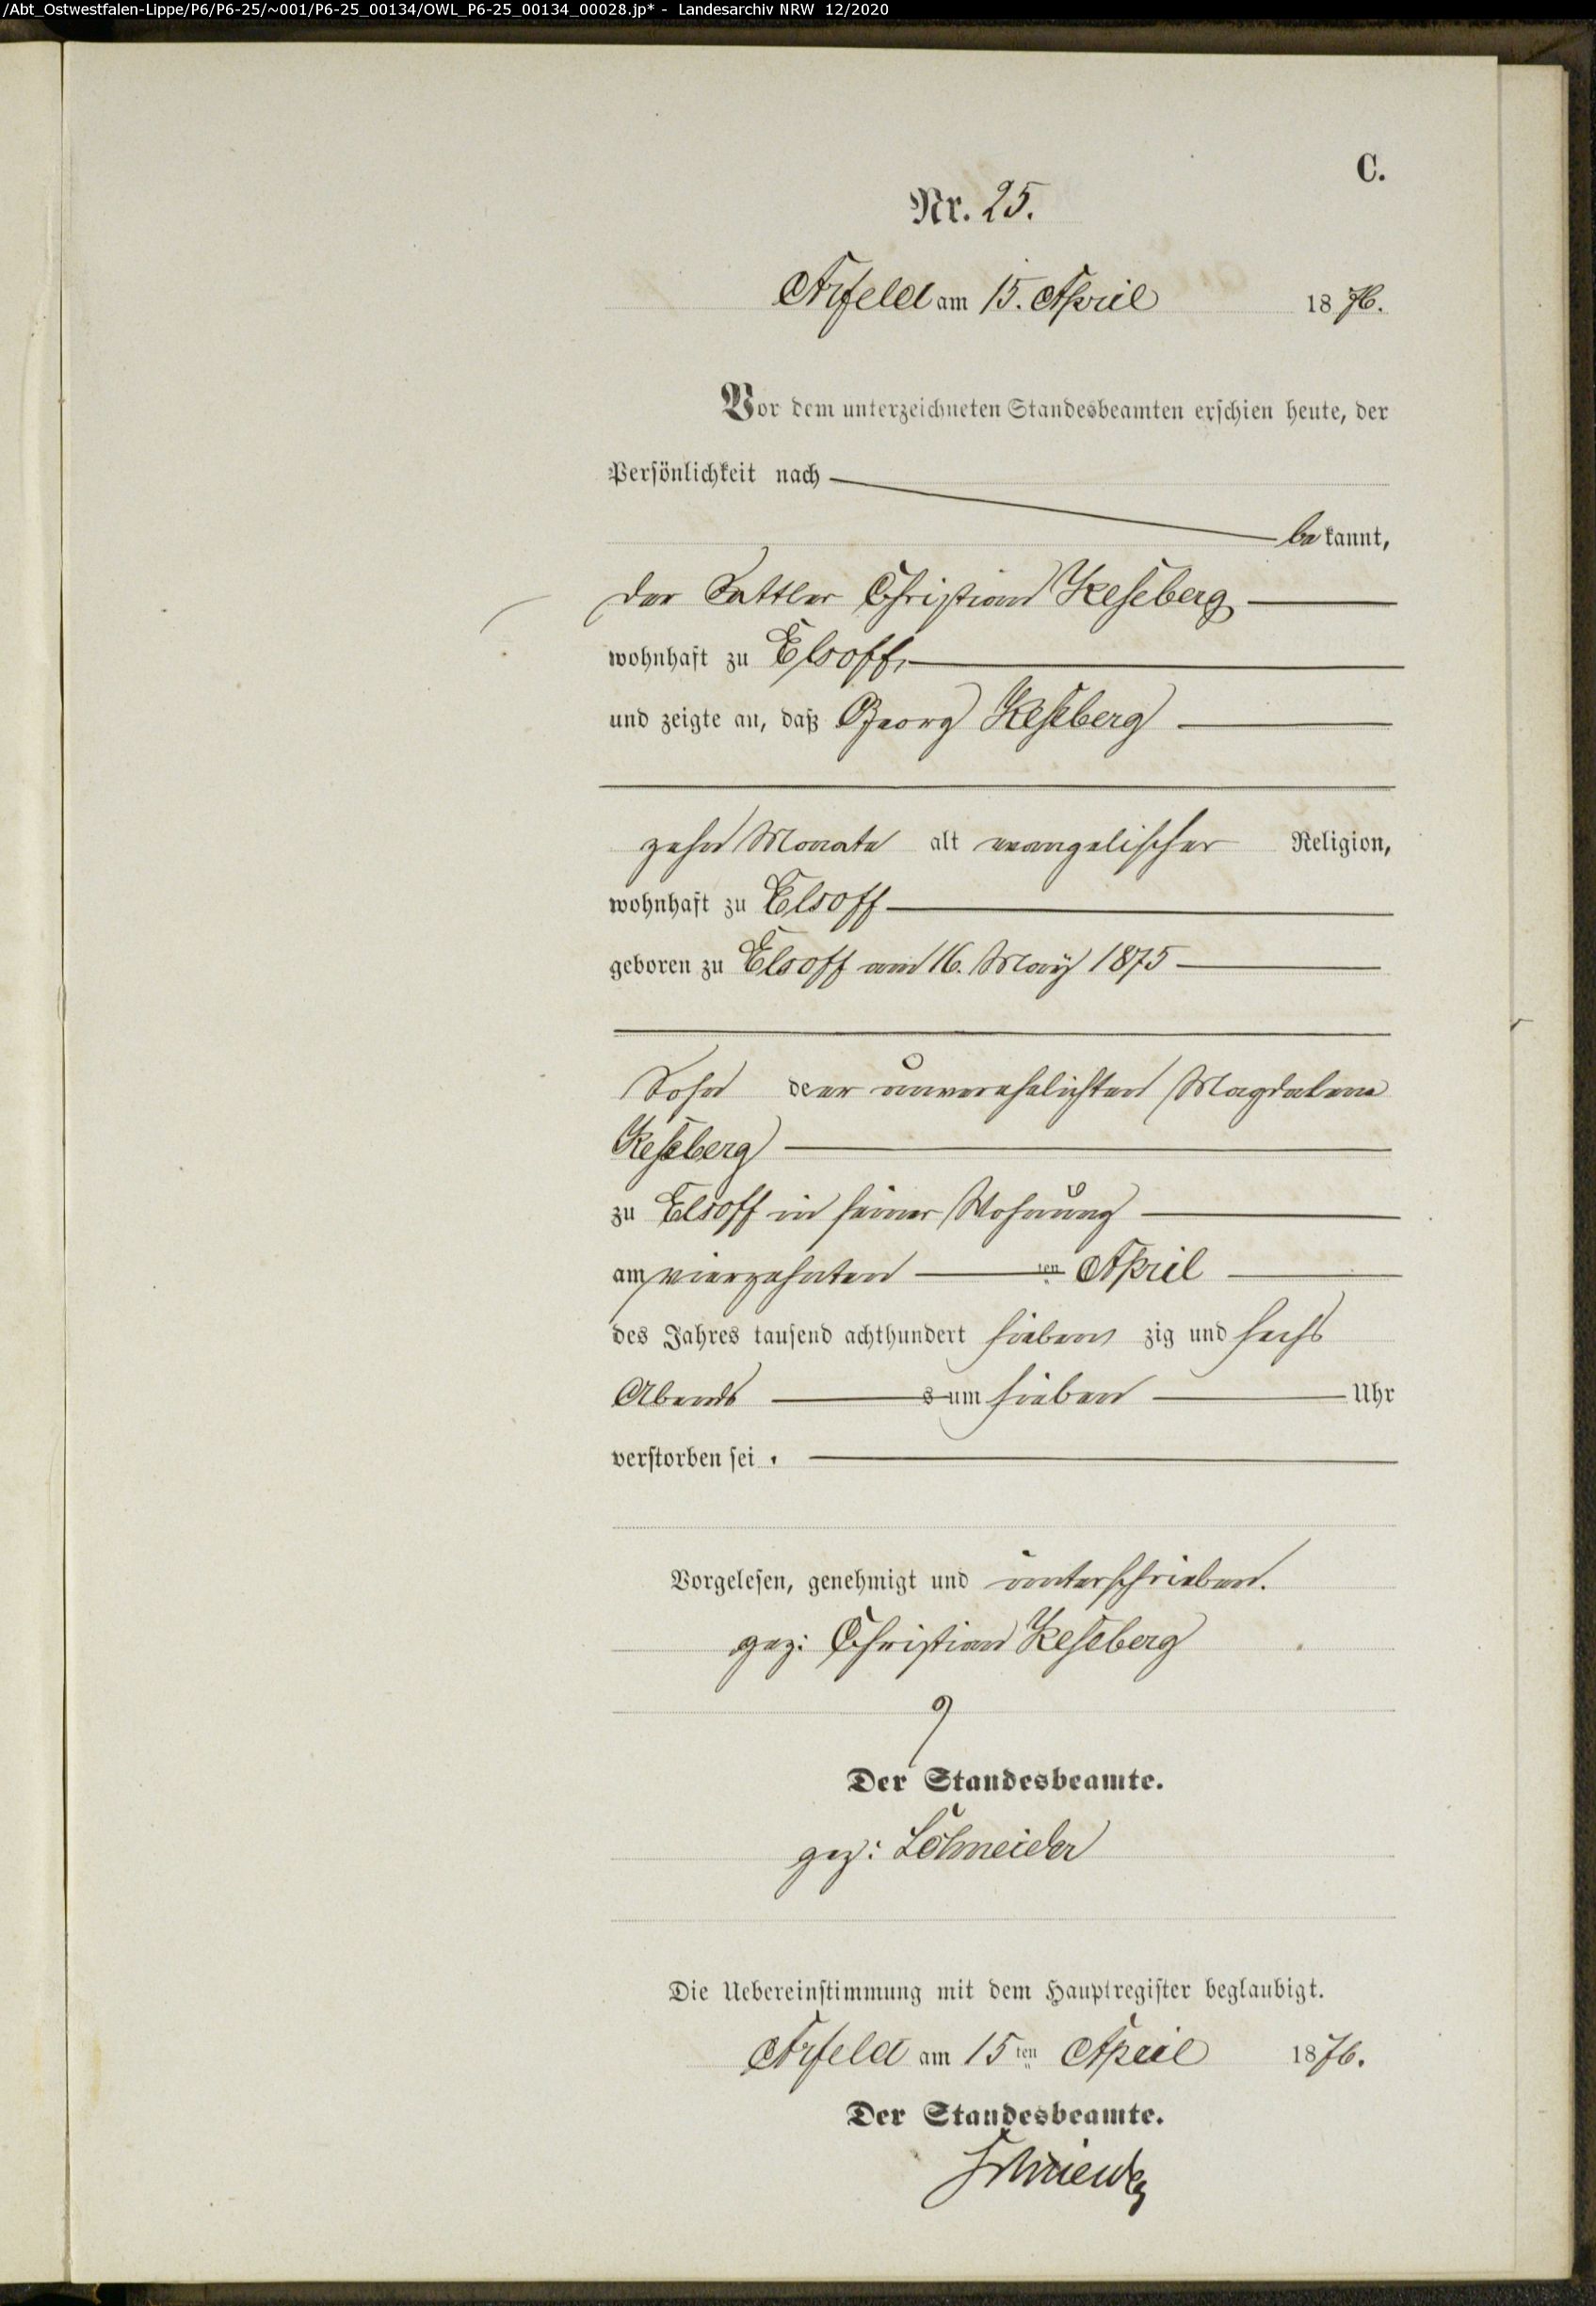 /Abt_Ostwestfalen-Lippe/P6/P6-25/~001/P6-25_00134/OWL_P6-25_00134_00028.jp* - Landesarchiv NRW 12/2020
C.
Nr. 25.
Arfeld am 15. April 1876.
Vor dem unterzeichneten Standesbeamten erschien heute, der
Persönlichkeit nach
bekannt,
der Sattler Christian Keseberg
wohnhaft zu Elsoff,
und zeigte an, daß Georg Keseberg
zehn Monate alt evangelischer Religion,
wohnhaft zu Elsoff
geboren zu Elsoff am 16. May 1875
Sohn der unverehelichten Magdalena
Keseberg
zu Elsoff in seiner Wohnung
am vierzehnten ten April
des Jahres tausend achthundert siebenzig und sechs
Abends s um sieben Uhr
verstorben sei.
Vorgelesen, genehmigt und unterschrieben.
gez: Christian Keseberg
Der Standesbeamte.
gez: Schneider
Die Uebereinstimmung mit dem Hauptregister beglaubigt.
Arfeld am 15ten April 1876.
Der Standesbeamte.
Schneider